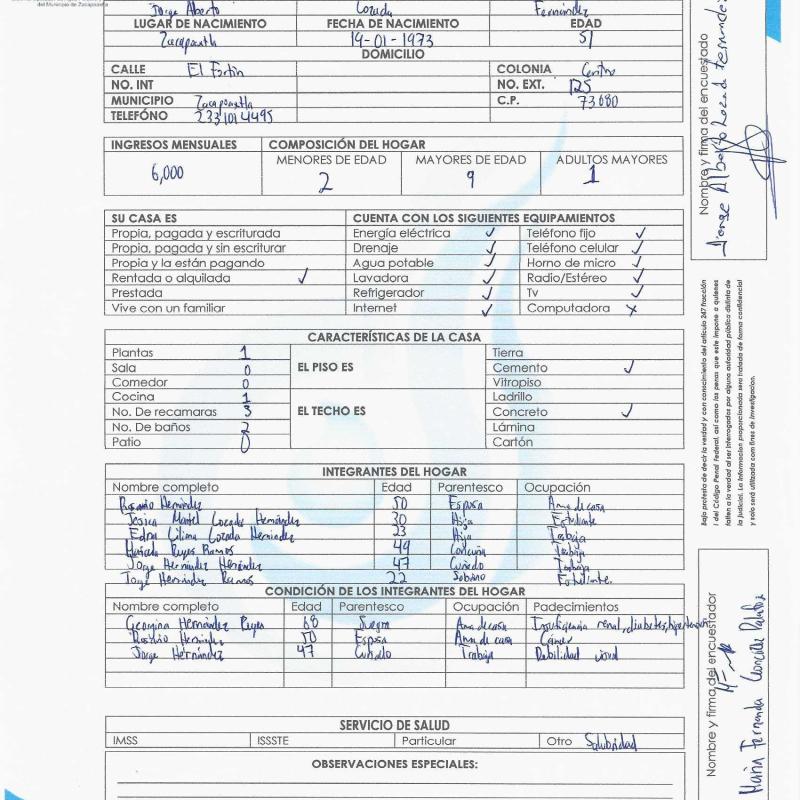 del Municipio de Zacapoaxtla
Jorge Alberto Lozada Fernández
LUGAR DE NACIMIENTO FECHA DE NACIMIENTO EDAD
Zacapoaxtla 19-01-1973 51
DOMICILIO
CALLE El Fortín COLONIA Centro
NO. INT NO. EXT. 125
MUNICIPIO Zacapoaxtla C.P. 73680
TELEFÓNO 2331014495
INGRESOS MENSUALES COMPOSICIÓN DEL HOGAR
6,000 MENORES DE EDAD MAYORES DE EDAD ADULTOS MAYORES
2 9 1
SU CASA ES CUENTA CON LOS SIGUIENTES EQUIPAMIENTOS
Propia, pagada y escriturada Energía eléctrica ✓ Teléfono fijo ✓
Propia, pagada y sin escriturar Drenaje ✓ Teléfono celular ✓
Propia y la están pagando Agua potable ✓ Horno de micro ✓
Rentada o alquilada ✓ Lavadora ✓ Radio/Estéreo ✓
Prestada Refrigerador ✓ Tv ✓
Vive con un familiar Internet ✓ Computadora x
CARACTERÍSTICAS DE LA CASA
Plantas 1 Tierra
Sala 0 EL PISO ES Cemento ✓
Comedor 0 Vitropiso
Cocina 1 Ladrillo
No. De recamaras 3 EL TECHO ES Concreto ✓
No. De baños 2 Lámina
Patio 0 Cartón
INTEGRANTES DEL HOGAR
Nombre completo Edad Parentesco Ocupación
Rosario Hernández 50 Esposa Ama de casa
Jesica Lozada Hernández 30 Hija Estudiante
Edna Liliana Lozada Hernández 23 Hija Trabaja
Reyes Ramos 49 Concuña Trabaja
Jorge Hernández Hernández 47 Cuñado Trabaja
Jorge Hernández Ramos 22 Sobrino Estudiante.
CONDICIÓN DE LOS INTEGRANTES DEL HOGAR
Nombre completo Edad Parentesco Ocupación Padecimientos
Georgina Hernández Reyes 68 Suegra Ama de casa Insuficiencia renal, diabetes, hipertensión
Rosario Hernández 50 Esposa Ama de casa Cáncer
Jorge Hernández 47 Cuñado Trabaja Debilidad visual
SERVICIO DE SALUD
IMSS ISSSTE Particular Otro Salubridad
OBSERVACIONES ESPECIALES:
Nombre y firma del encuestado
Jorge Alberto Lozada Fernandez
Bajo protesta de decir la verdad y con conocimiento del artículo 247 fracción
I del Código Penal Federal, así como las penas que este impone a quienes
falten a la verdad al ser interrogados por alguna autoridad pública distinta de
la judicial. La información proporcionada sera tratada de forma confidencial
y solo será utilizada con fines de investigacion.
Nombre y firma del encuestador
María Fernanda